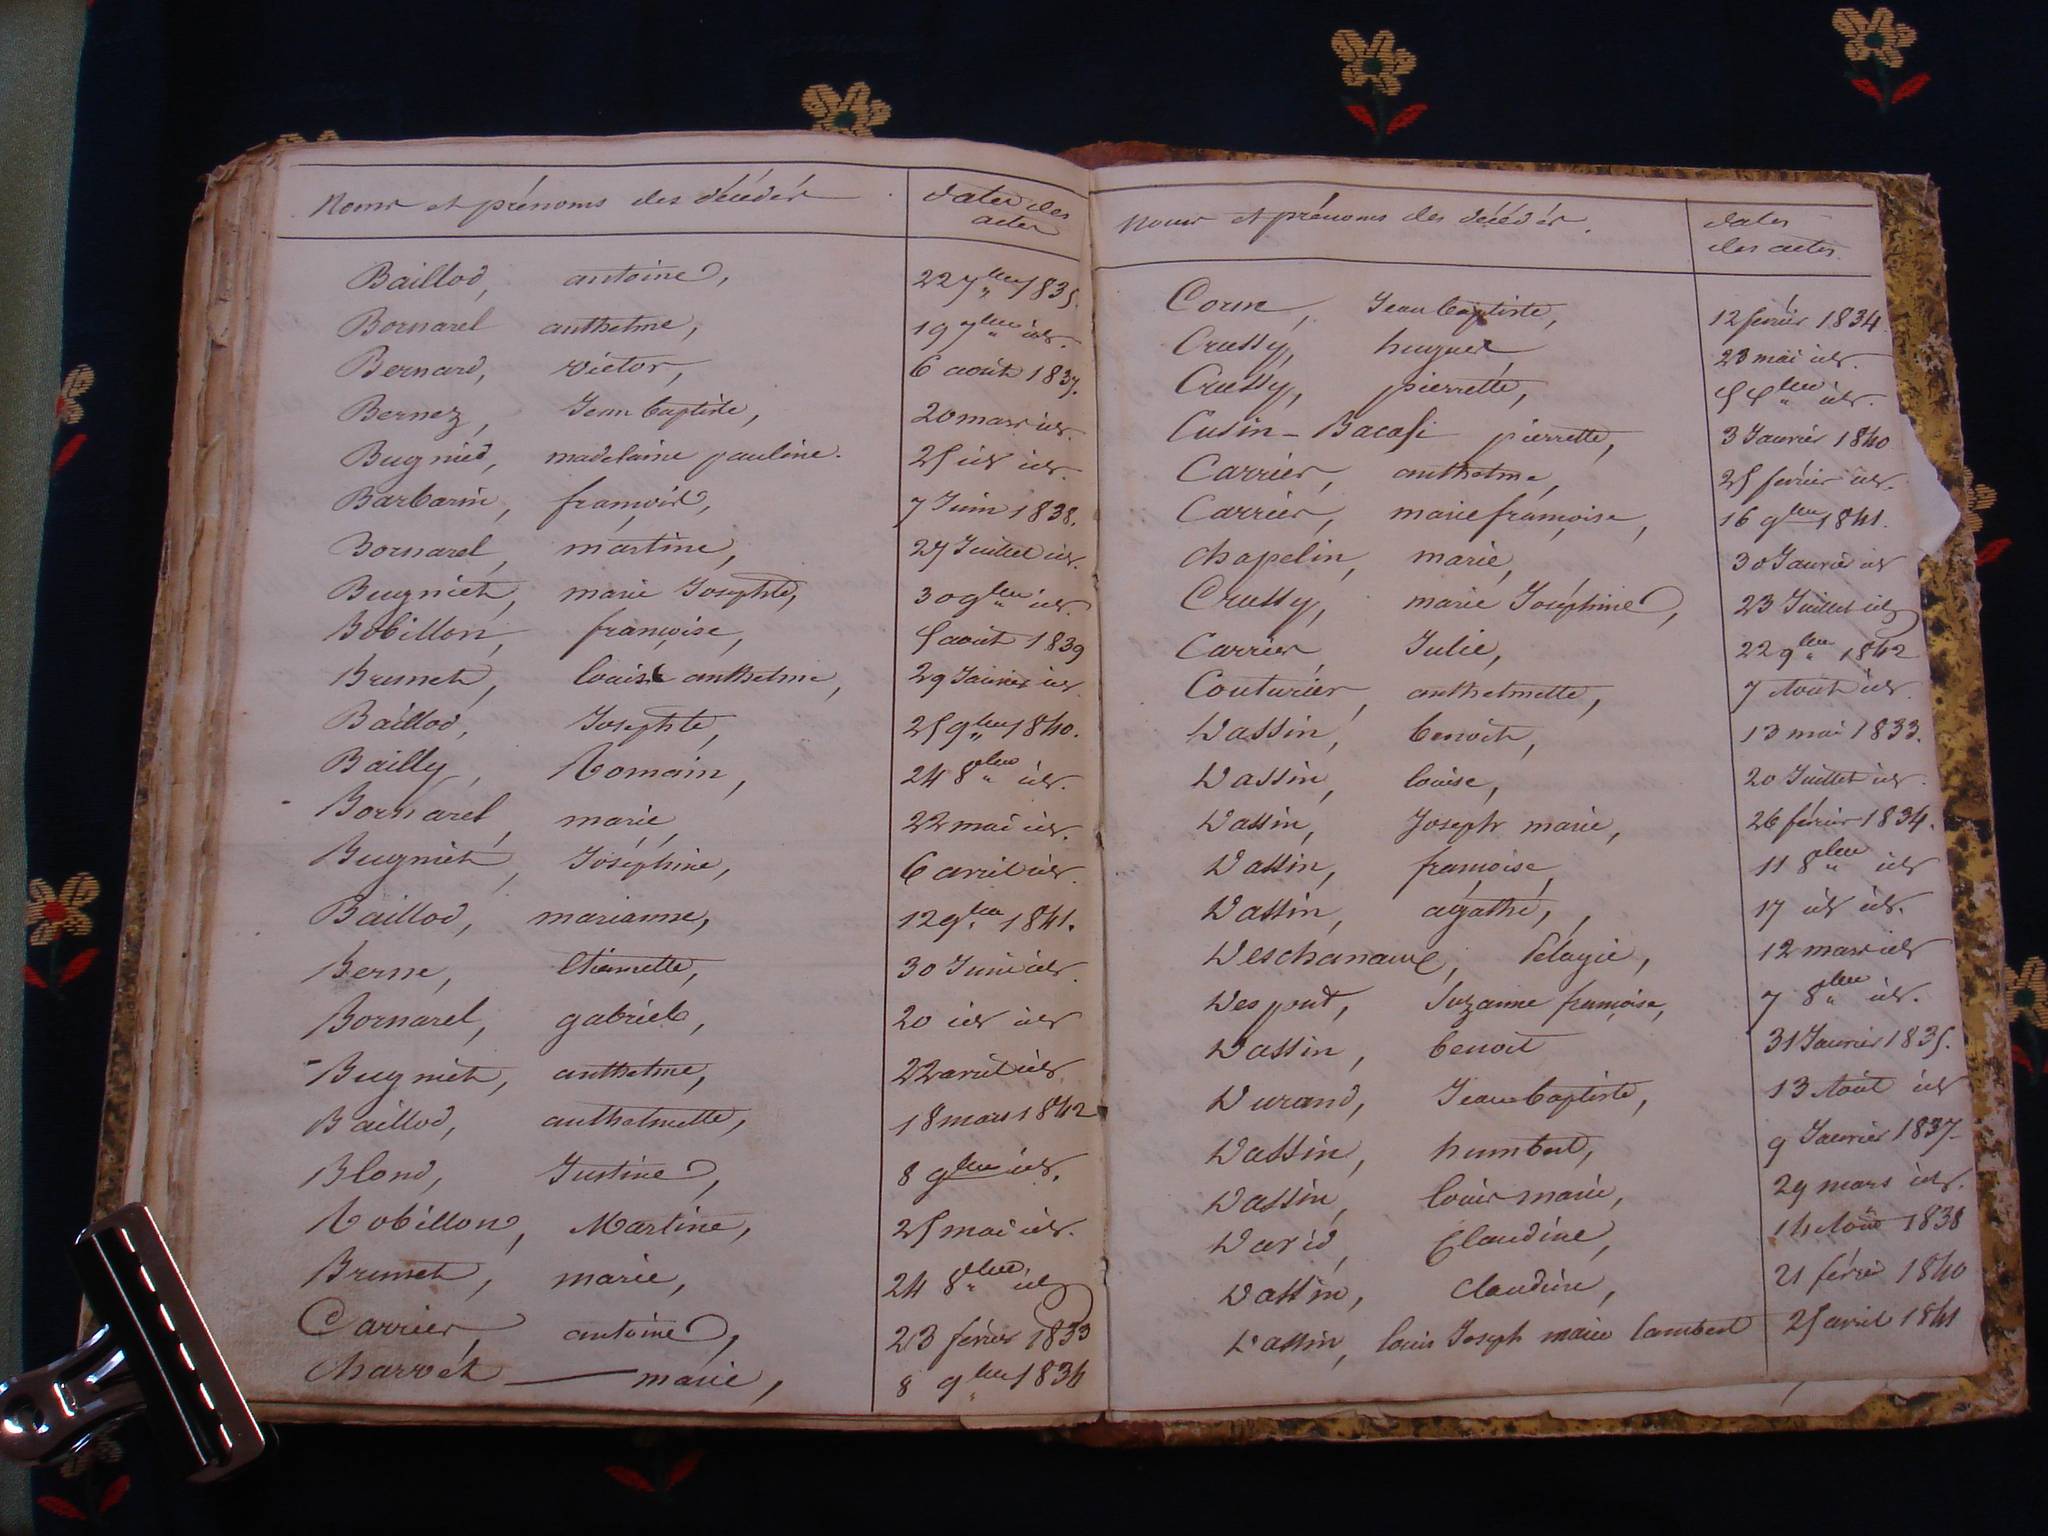 Noms et prénoms des décédés dates des actes
Baillod, antoine, 22 7bre 1835.
Bornarel anthelme, 19 7bre id.
Bernard, victor, 6 août 1837.
Bernez, Jean baptiste, 20 mars id.
Bugnied, madelaine pauline. 25 id id.
Barbarin, françois, 7 Juin 1838.
Bornarel, martine, 27 Juillet id.
Bugniet, marie Josephte, 30 9bre id.
Bobillon, françoise, 5 août 1839
Brunet, louise anthelme, 29 Janvier id.
Baillod, Josephte, 25 9bre 1840.
Bailly, Romain, 24 8bre id.
Bornarel, marie, 22 mai id.
Bugniet, Joséphine, 6 avril id.
Baillod, marianne, 12 9bre 1841.
Berne, Etiennette, 30 Juin id.
Bornarel, gabriel, 20 id id
Bugniet, anthelme, 22 avril id
Baillod, anthelmette, 18 mars 1842
Blond, Justine, 8 9bre id.
Robillon, Martine, 25 mai id.
Brunet, marie, 24 8bre id
Carrier, antoine, 23 février 1833
Charvet — marie, 8 9bre 1834
Noms et prénoms des décédés. dates des actes.
Corne, Jean baptiste, 12 février 1834
Crussy, hugues 23 mai id.
Crussy, pierrette, 5 id.
Cusin-Bacasi pierrette, 3 Janvier 1840
Carrier, anthelme, 25 février id.
Carrier, marie françoise, 16 9bre 1841.
Chapelin, marie, 30 Janvier id
Crussy, marie Joséphine, 23 Juillet id
Carrier, Julie, 22 9bre 1842
Couturier, anthelmette, 7 Août id.
Dassin, benoit, 13 mai 1833.
Dassin, louise, 20 Juillet id.
Dassin, Joseph marie, 26 février 1834.
Dassin, françoise, 11 8bre id
Dassin, agathe, 17 id id.
Deschanaux, Pélagie, 12 mars id
Desport, Suzanne françoise, 7 8bre id.
Dassin, benoit 31 Janvier 1835.
Durand, Jean baptiste, 13 Août id
Dassin, humbert, 9 Janvier 1837
Dassin, louis marie, 29 mars id.
David, Claudine, 14 Août 1838
Dassin, claudine, 21 févrie 1840
Dassin, louis Joseph marie lambert 25 avril 1841